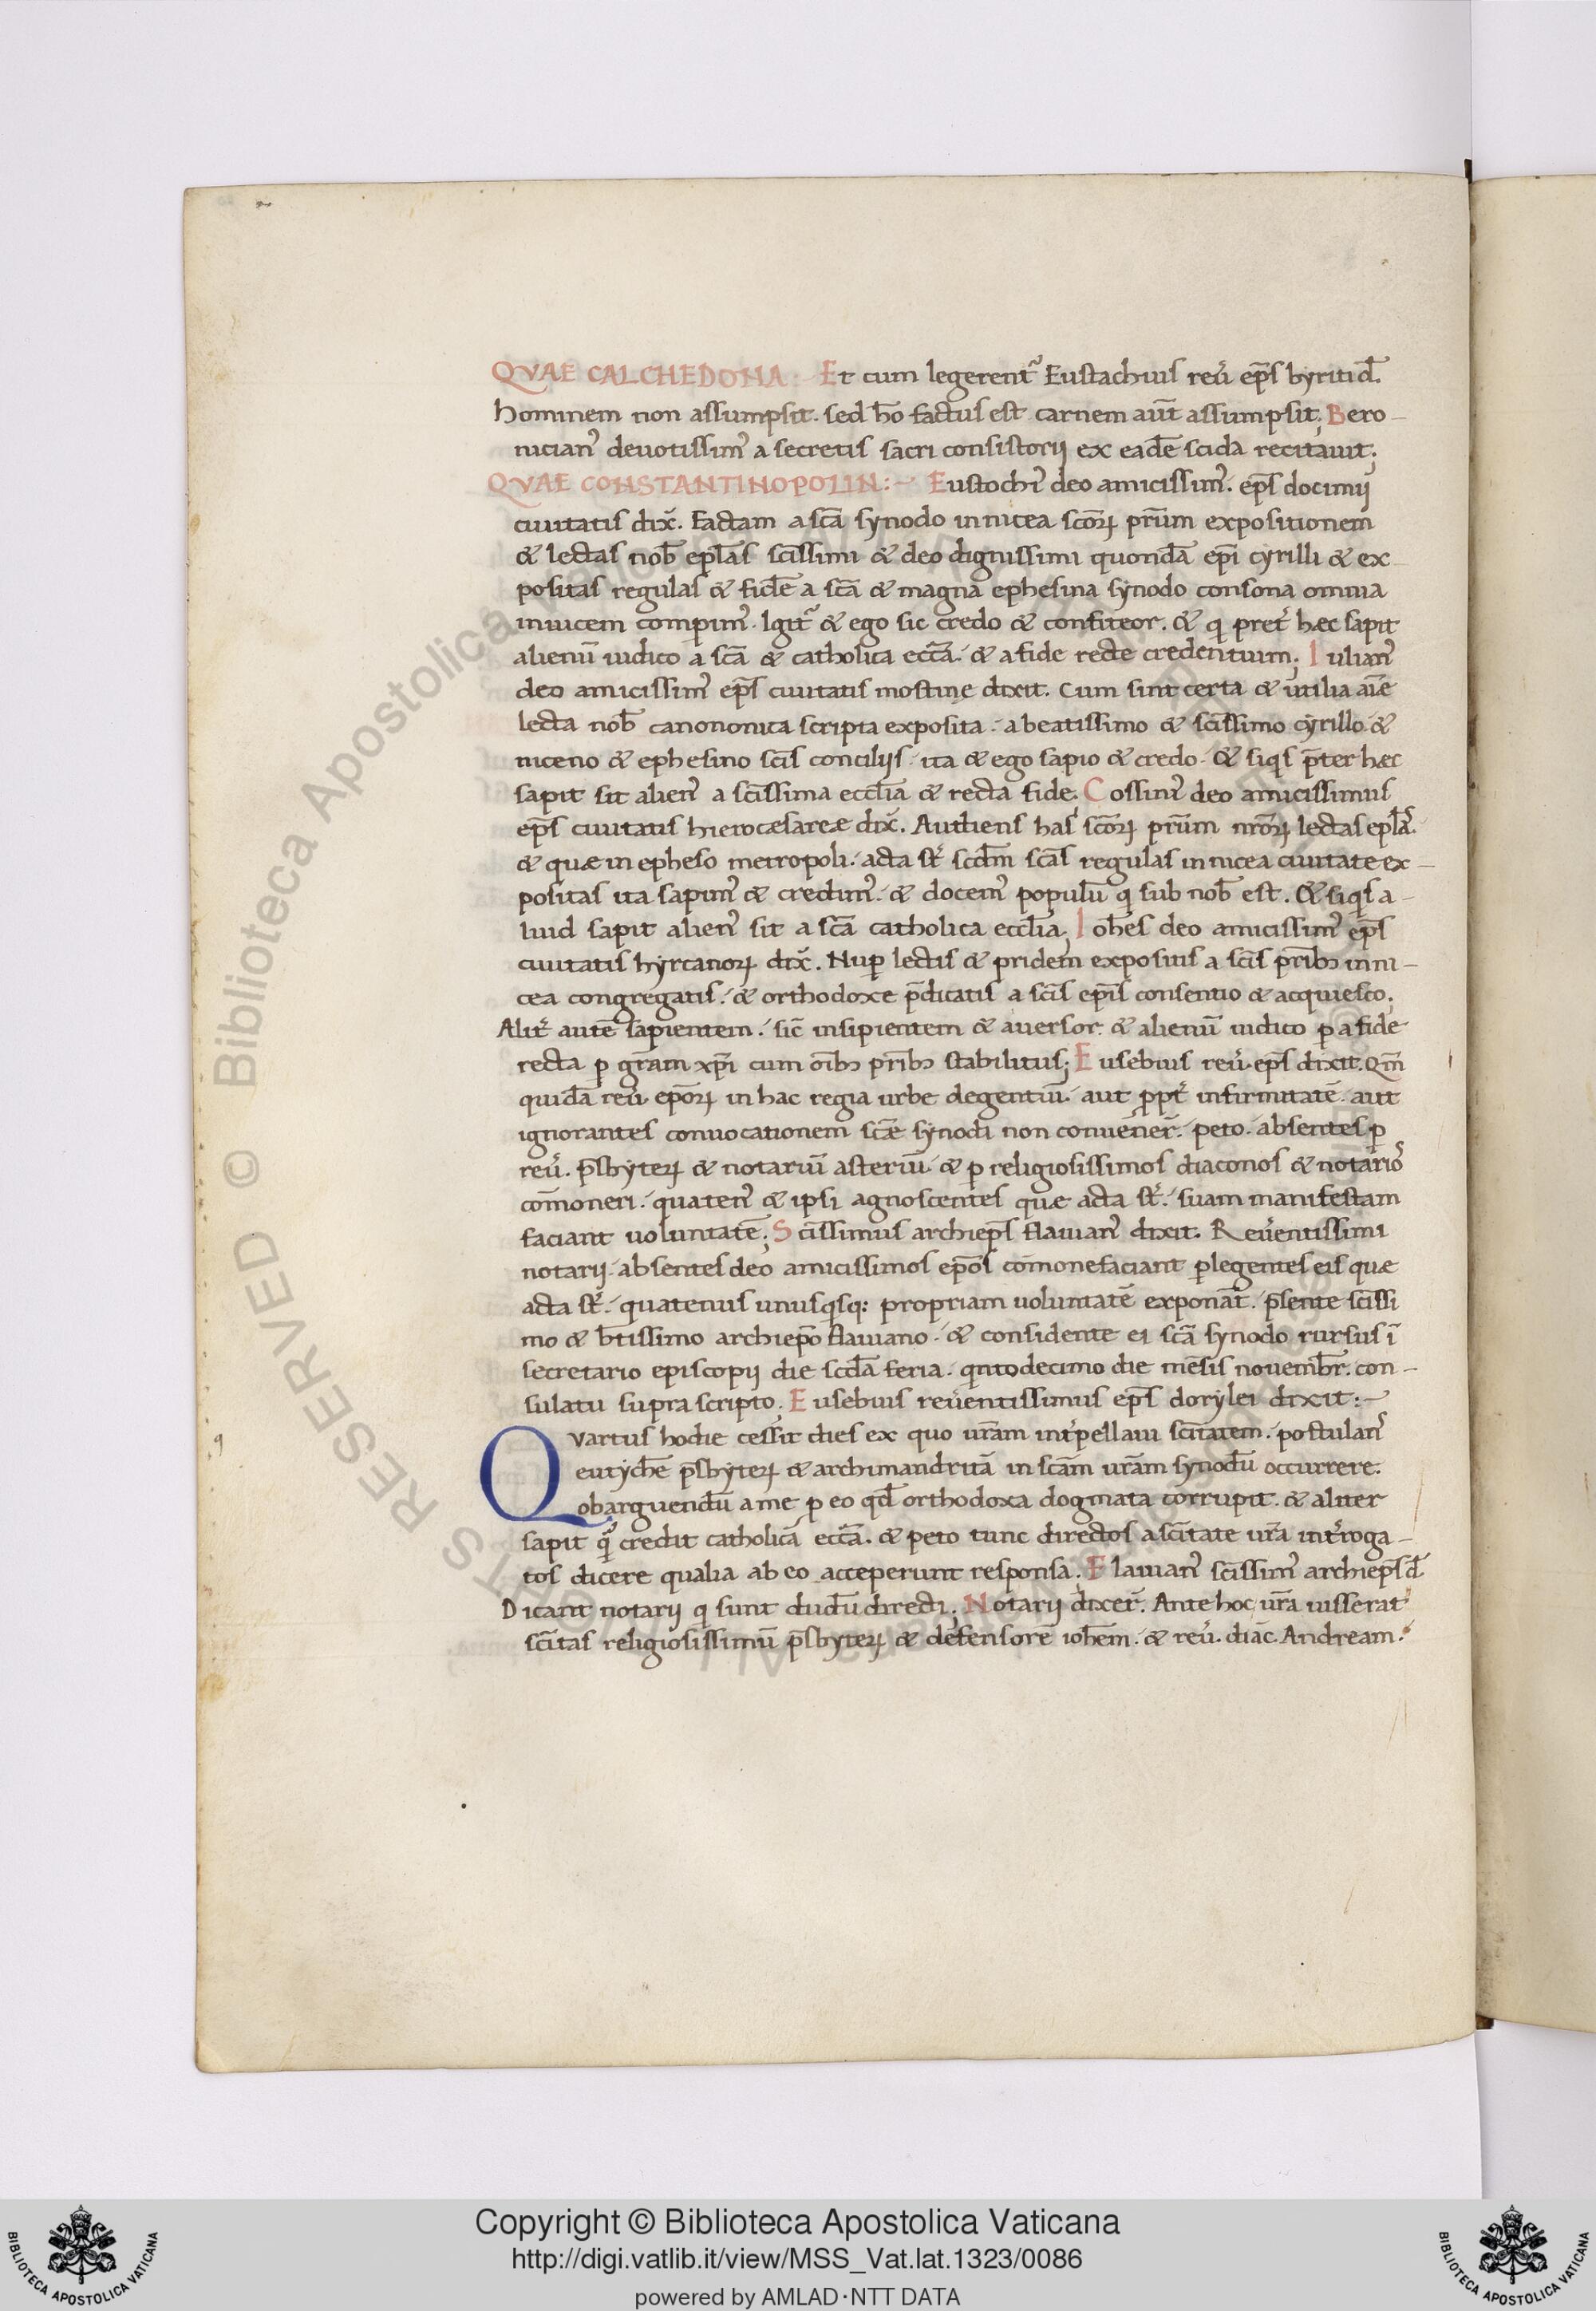 QVAE CALCHEDONA :- Et cum legerent᷑ Eustachius reu̅ ep̅s byriti d̅.
hominem non assumpsit. sed ho̅ factus est carnem aut̅ assumpsit; Bero-
nician᷒ deuotissim᷒ a secretis sacri consistorij ex eade̅ scida recitauit;
QVAE CONSTANTINOPOLIN :- Eustochi᷒ deo amicissim᷒. ep̅s docimij
ciuitatis dix̅. Factam a sc̅a synodo in nicea sc̅oꝝ pr̅um expositionem
& lectas nob̅ epl̅as sc̅issimi & deo dignissimi quonda̅ ep̅i cyrilli & ex-
positas regulas & fide̅ a sc̅a & magna ephesina synodo consona omnia
inuicem comperim᷒. Igit᷑ & ego sic credo & confiteor. & q pret᷑ hæc sapit
alienu̅ iudico a sc̅a & catholica eccl̅a. & a fide recte credentium; Iulian᷒
deo amicissim᷒ ep̅s ciuitatis mostine dixit. Cum sint certa & utilia a̅ie̅
lecta nob̅ canononica scripta exposita. a beatissimo & sc̅issimo cyrillo. &
niceno & ephesino sc̅is concilijs. ita & ego sapio & credo. & siqs p̅ter hæc
sapit sit alien᷒ a sc̅issima eccl̅ia & recta fide; Cossin᷒ deo amicissimus
ep̅s ciuitatis hierocæsareæ dix̅. Audiens has sc̅oꝝ pr̅um nr̅oꝝ lectas epl̅a᷒.
& quæ in epheso metropoli. acta st᷑ scd̅m sc̅as regulas in nicea ciuitate ex-
positas ita sapim᷒ & credim᷒. & docem᷒ populu̅ q sub nob̅ est. & siqs a-
liud sapit alien᷒ sit a sc̅a catholica eccl̅ia; Ioh̅es deo amicissim᷒ ep̅s
ciuitatis hyrcanoꝝ dix̅. Nuꝑ lectis & pridem expositis a sc̅is pr̅ibꝫ in ni-
cea congregatis. & orthodoxe p̅dicatis a sc̅is ep̅is consentio & acquiesco;
Alit᷑ aute̅ sapientem. sic̅ insipientem & auersor. & alienu̅ iudico ꝑ a fide
recta ꝑ gr̅am xp̅i cum o̅ibꝫ pr̅ibꝫ stabilitus; Eusebius reu̅. ep̅s dixit. Qm̅
quida̅ reu̅. ep̅oꝝ in hac regia urbe degentiu̅. aut ꝓpt᷑ infirmitate̅. aut
ignorantes conuocationem sc̅æ synodi non conuener̅. peto. absentes ꝑ
reu̅. p̅sbyteꝝ & notariu̅ asteriu̅. & ꝑ religiosissimos diaconos & notario᷒
co̅moneri. quaten᷒ & ipsi agnoscentes quæ acta st᷑. suam manifestam
faciant uoluntate̅; Sc̅issimus archiep̅s flauian᷒ dixit. Reue̅ntissimi
notarij. absentes deo amicissimos ep̅os co̅monefaciant ꝑlegentes eis quæ
acta st᷑. quatenus unusqsq: propriam uoluntate̅ exponat̅. p̅sente sc̅issi
mo & b̅tissimo archiep̅o flauiano. & considente ei sc̅a synodo rursus i̅
secretario episcopij die scd̅a feria. qntodecimo die me̅sis nouembr̅. con-
sulatu supra scripto; Eusebius reue̅ntissimus ep̅s dorylei dixit :-
Qvartus hodie cessit dies ex quo ur̅am int᷑pellaui sc̅itatem. postulan᷒
eutyche̅ p̅sbyteꝝ & archimandrita̅ in sc̅am ur̅am synodu̅ occurrere.
obarguendu̅ a me ꝑ eo qd̅ orthodoxa dogmata corrupit. & aliter
sapit q̅ credit catholica̅ eccl̅a. & peto tunc directos a sc̅itate ur̅a int᷑roga-
tos dicere qualia ab eo acceperunt responsa; Flauian᷒ sc̅issim᷒ archiep̅s d̅.
Dicant notarij q sunt dudu̅ directi; Notarij dixer̅. Ante hoc ur̅a iusserat
sc̅itas religiosissimu̅ p̅sbyteꝝ & defensore̅ ioh̅em. & reu̅. diac̅. Andream.
Copyright © Biblioteca Apostolica Vaticana
http://digi.vatlib.it/view/MSS_Vat.lat.1323/0086
powered by AMLAD·NTT DATA
BIBLIOTECA APOSTOLICA VATICANA
BIBLIOTECA APOSTOLICA VATICANA